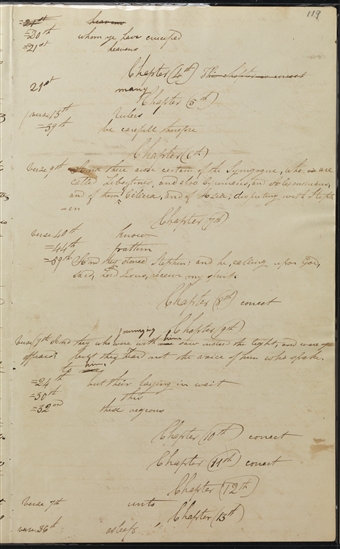 119
=20th whom ye have crucified
=21st heavens
Chapter (4th) correct
21st many
Chapter (5th)
verse 15th rulers
=39th be carefull therefore
Chapter (6th)
verse 9th there arose certain of the Synagogue, who are
called Libertines, and also Cyrenians, and Alexandrians,
and of them Cilicia, and of Asia, disputing with Steph
=en
Chapter 7th
verse 40th know
=44th pattern
=59th And they stoned Stephen: and he, calling upon God,
said, Lord Jesus, receive my spirit.
Chapter (8th) correct
Chapter (9th)
verse 7th And they who were with him saw indeed the light, and were
afraid; but they heard not the voice of him who spake
to him
=24th but their laying in wait
=30th this
=32nd these regions
Chapter (10th) correct
Chapter (11th) correct
Chapter (12th)
verse 7th unto
Chapter (13th)
verse 36th asleep